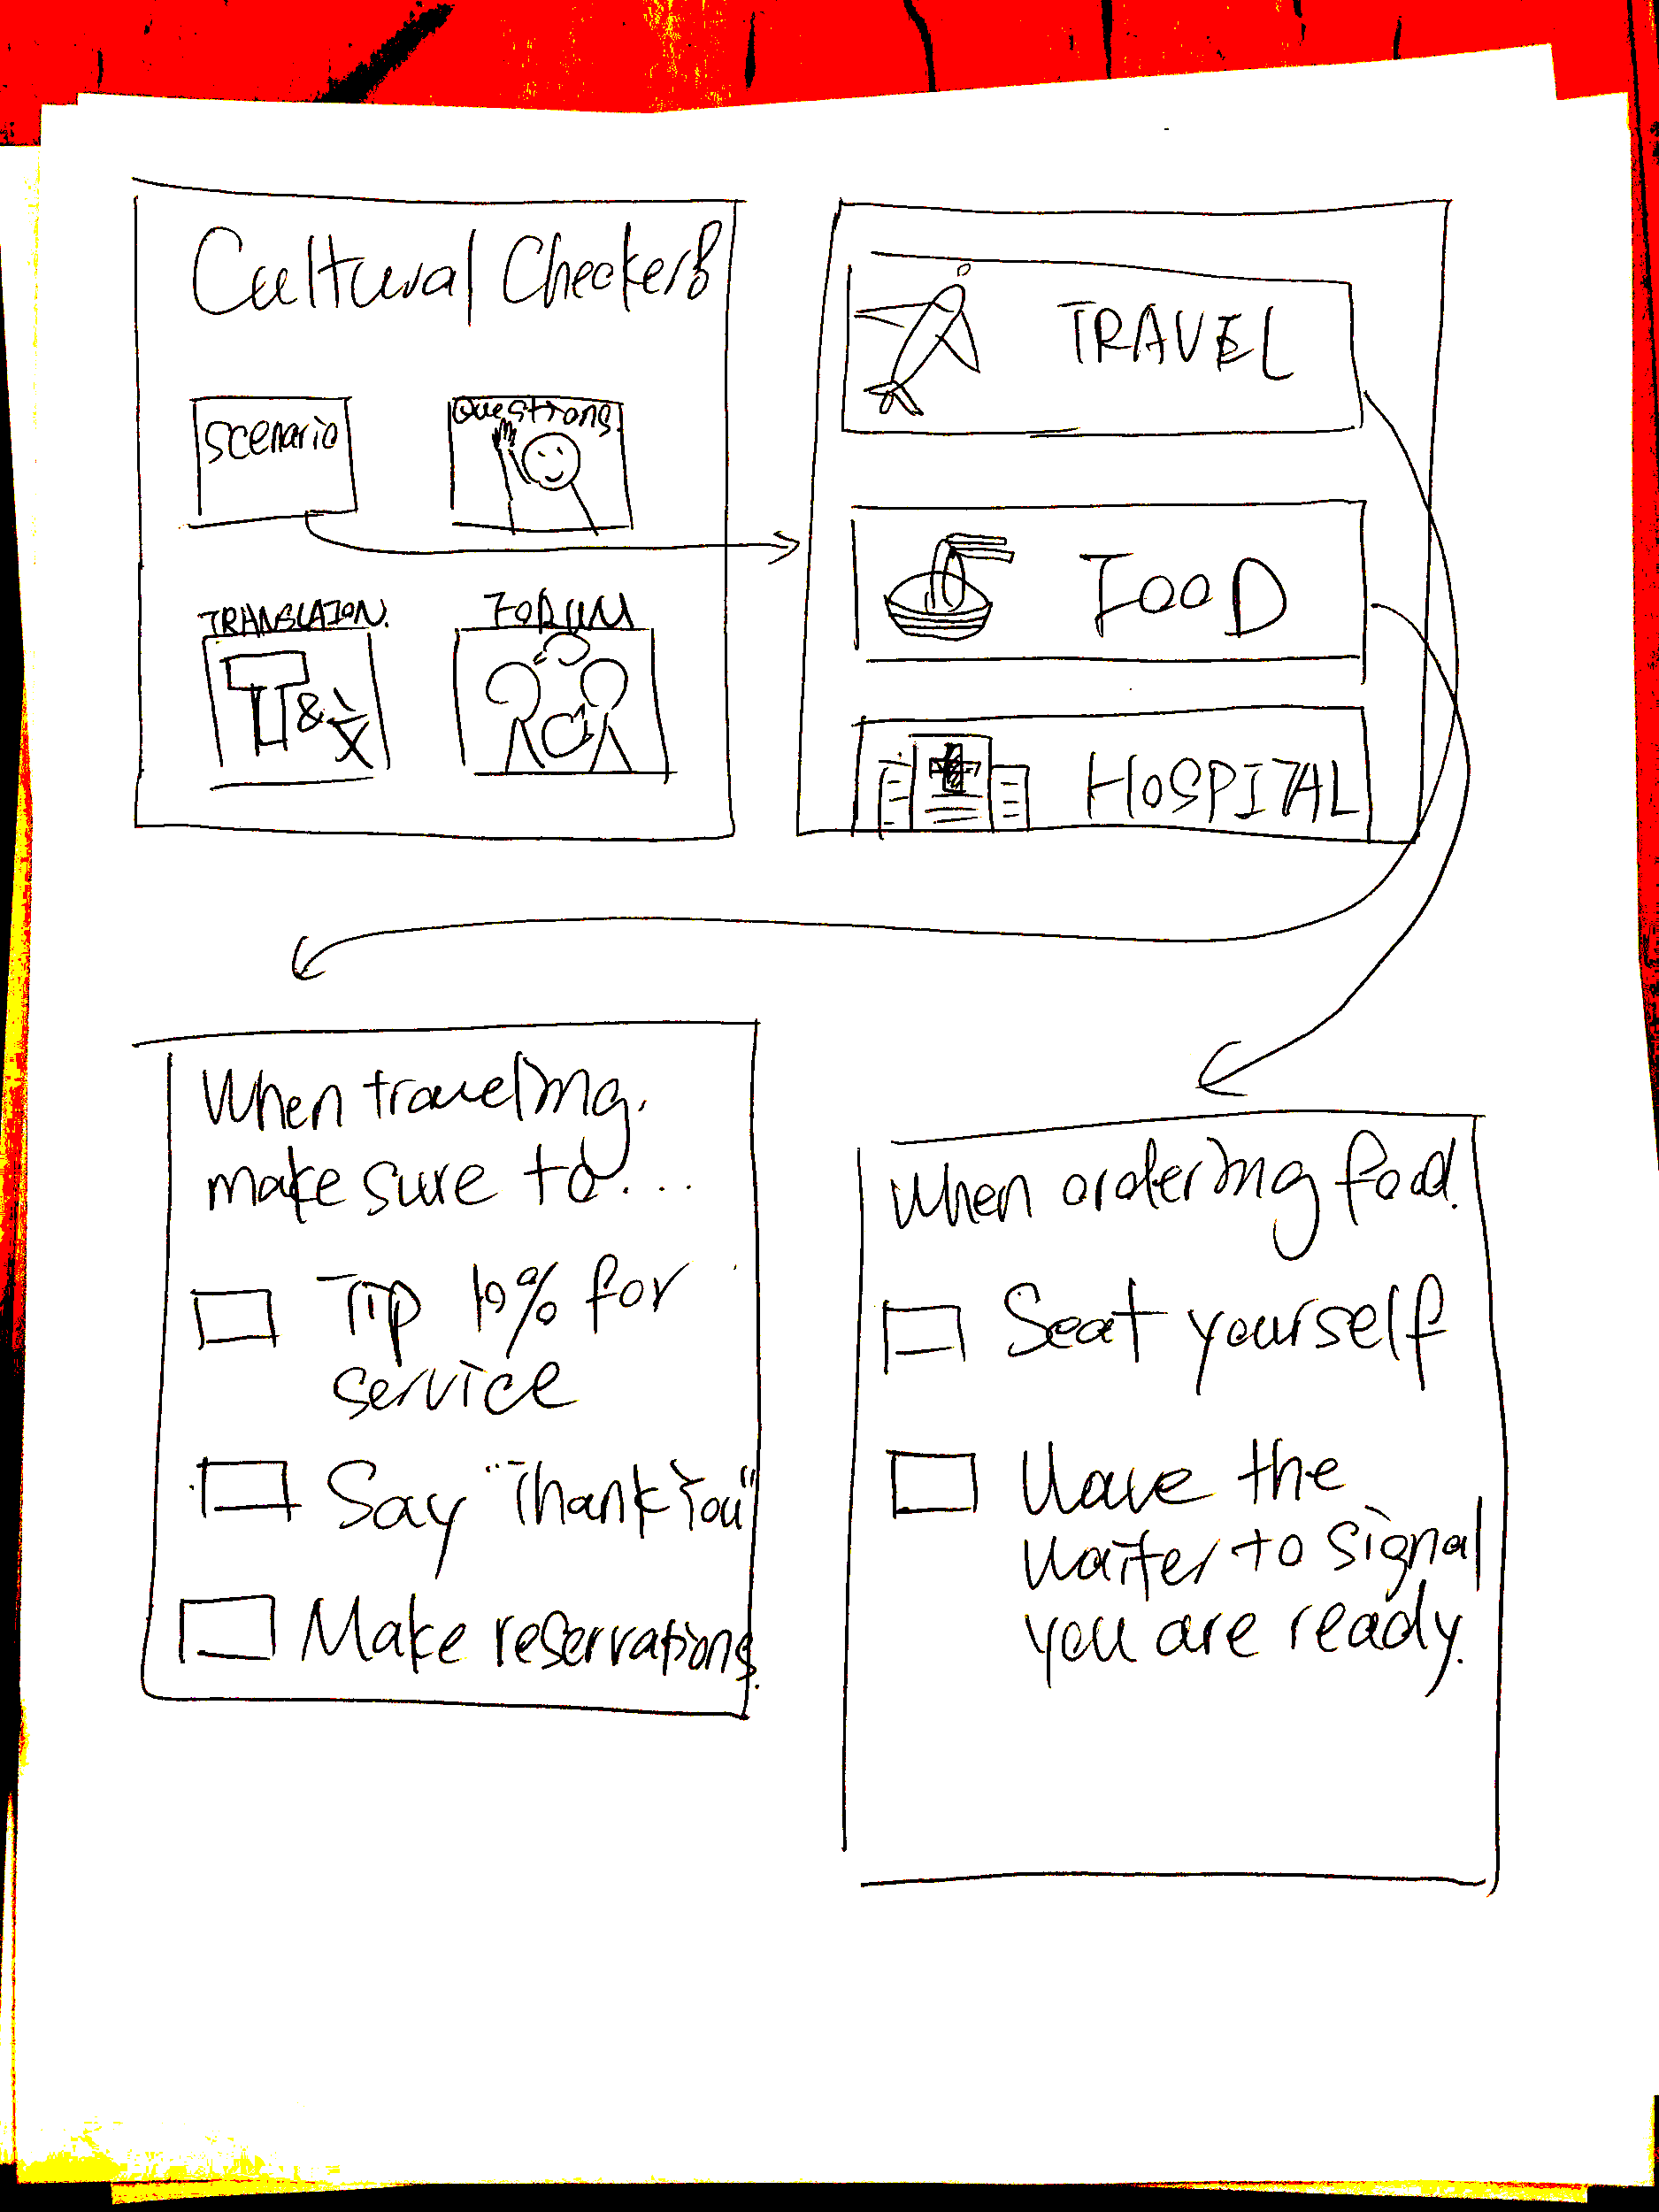 Cultural Checkers
Scenario
Questions.
TRANSLATION.
FORUM
& 文
TRAVEL
FOOD
HOSPITAL
When traveling,
make sure to...
Tip 10% for
service
Say "Thank You"
Make reservations.
When ordering food.
Seat yourself
Wave the
waiter to signal
you are ready.